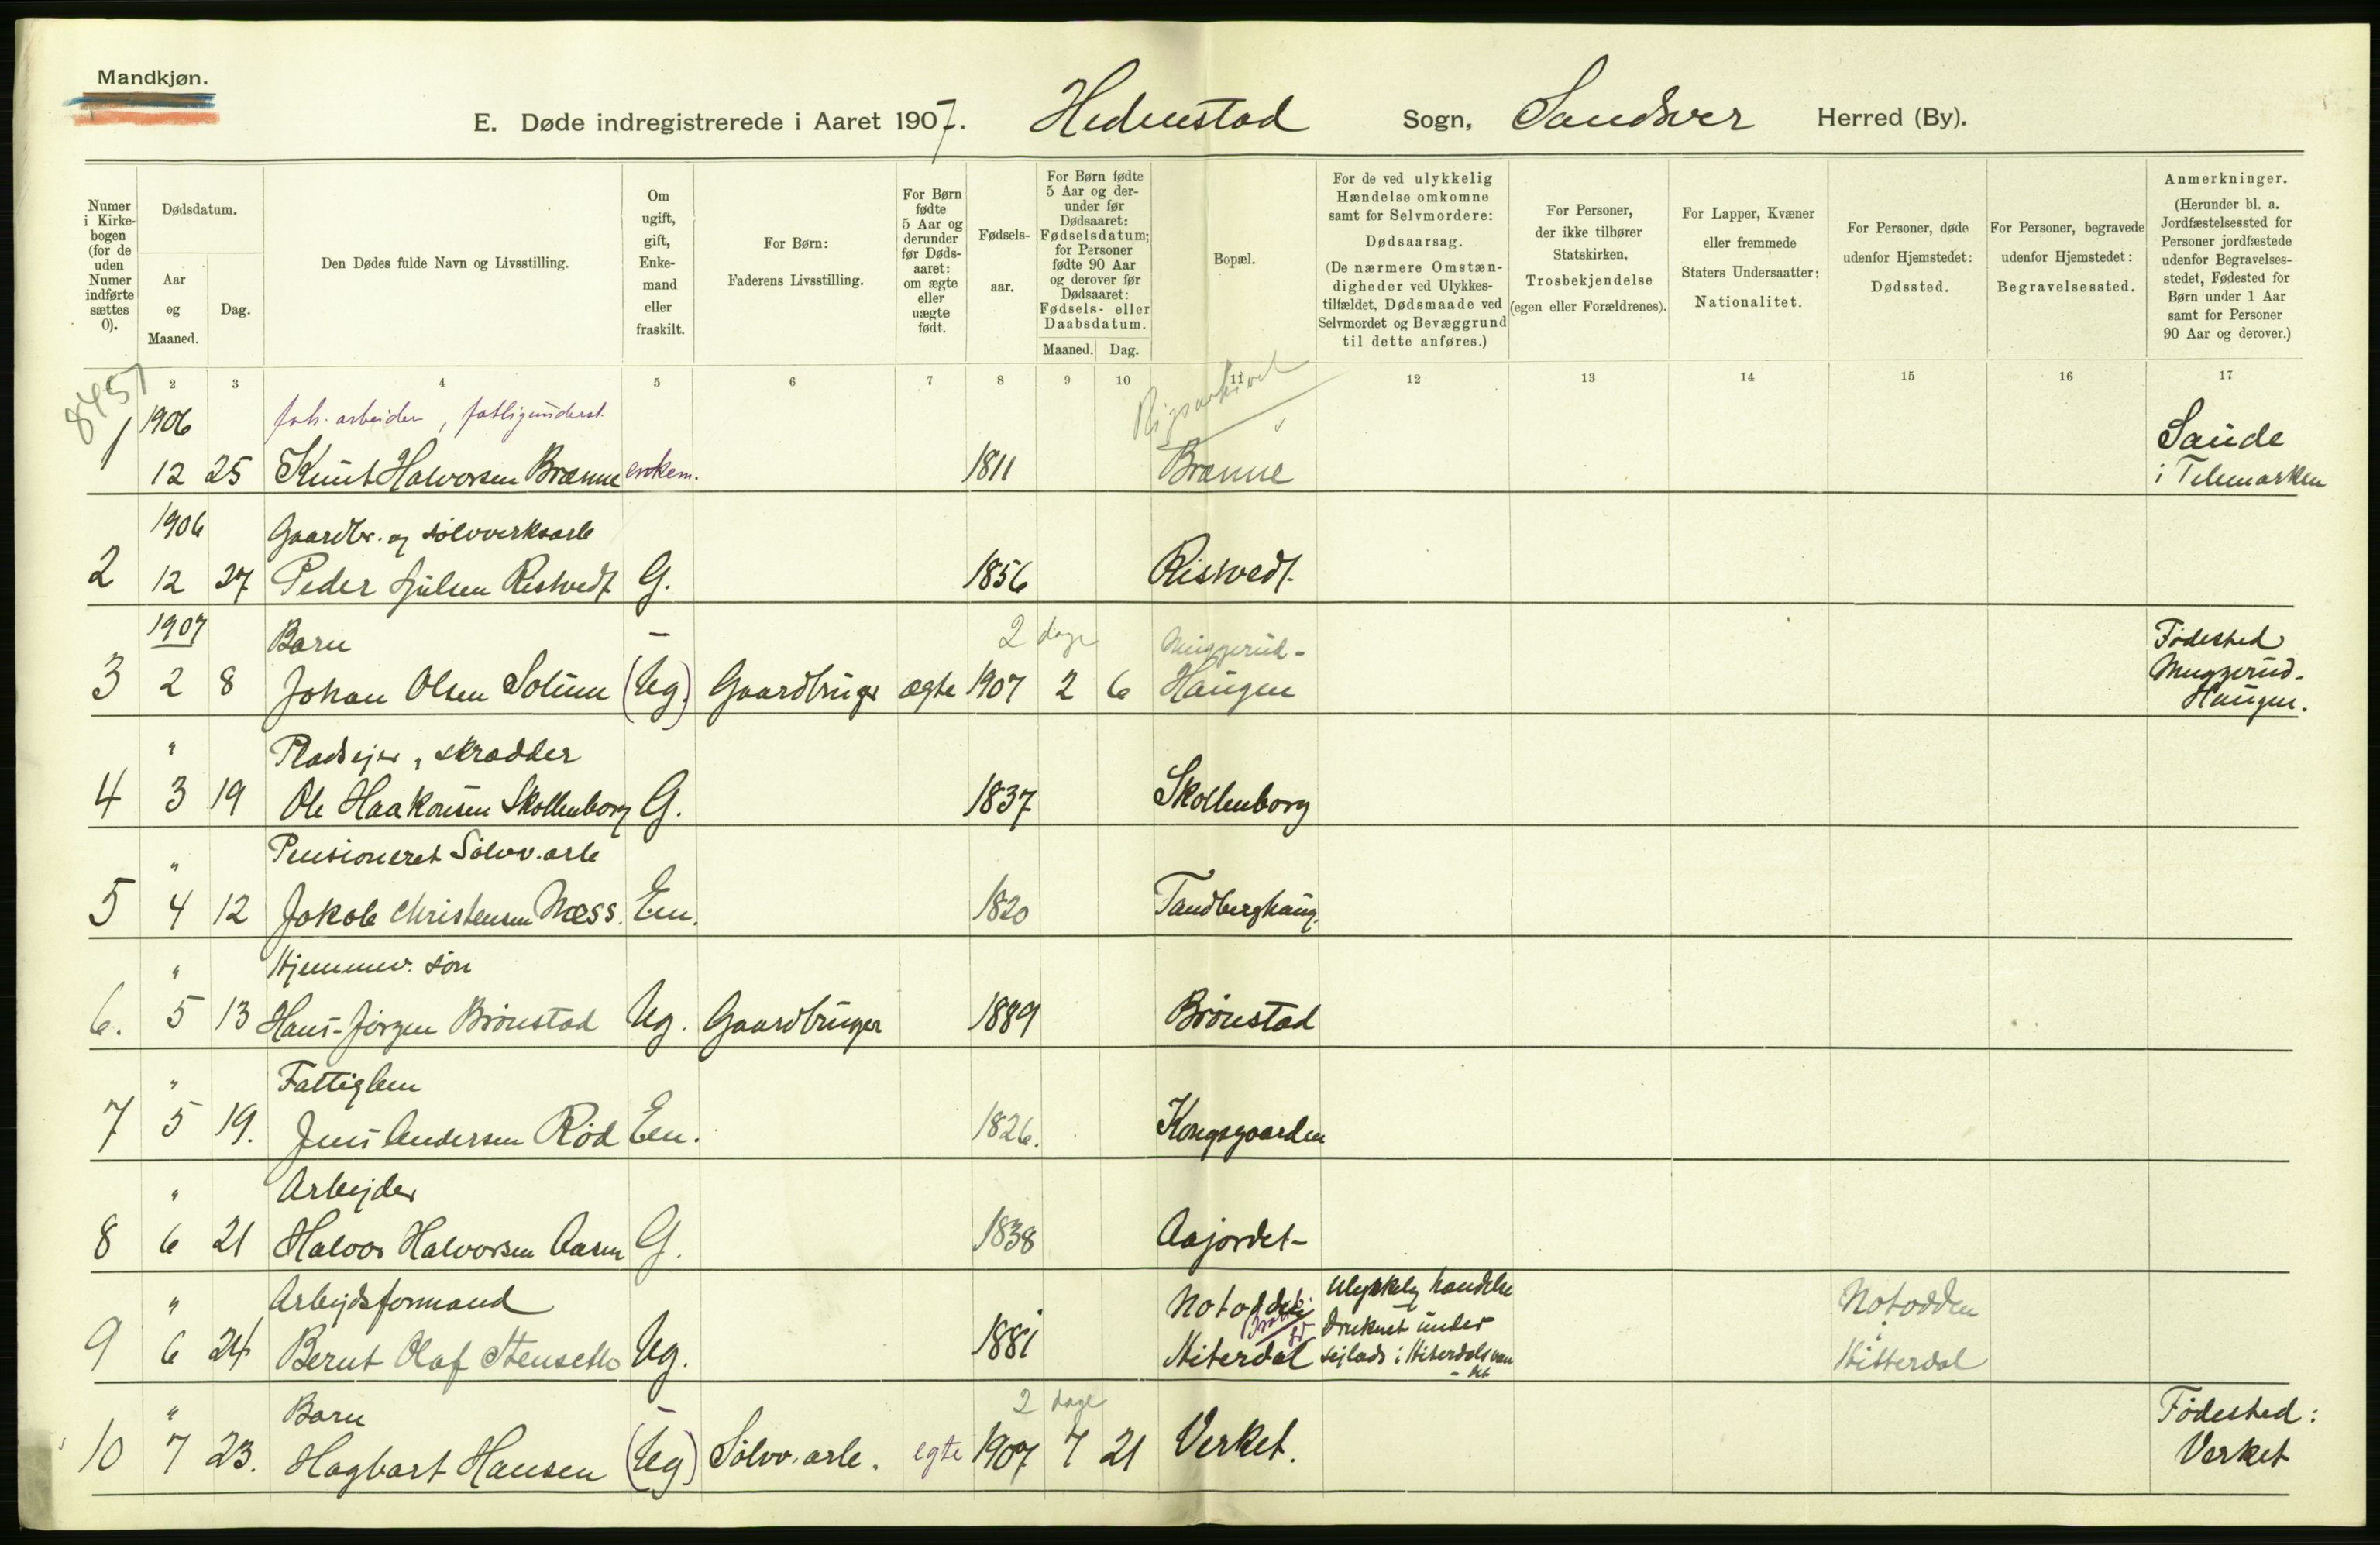 Mandkjøn.
E. Døde indregistrerede i Aaret 1907. Hedenstad Sogn, Sandsver Herred (By).
Numer i Kirkebogen (for de uden Numer indførte sættes 0).
Dødsdatum.
Aar og Maaned.
Dag.
Den Dødes fulde Navn og Livsstilling.
Om ugift, gift, Enkemand eller fraskilt.
For Børn: Faderens Livsstilling.
For Børn fødte 5 Aar og derunder før Dødsaaret: om ægte eller uægte født.
Fødselsaar.
For Børn fødte 5 Aar og derunder før Dødsaaret: Fødselsdatum; for Personer fødte 90 Aar og derover før Dødsaaret: Fødsels- eller Daabsdatum.
Maaned. Dag.
Bopæl.
For de ved ulykkelig Hændelse omkomne samt for Selvmordere: Dødsaarsag. (De nærmere Omstændigheder ved Ulykkestilfældet, Dødsmaade ved Selvmordet og Bevæggrund til dette anføres.)
For Personer, der ikke tilhører Statskirken, Trosbekjendelse (egen eller Forældrenes).
For Lapper, Kvæner eller fremmede Staters Undersaatter: Nationalitet.
For Personer, døde udenfor Hjemstedet: Dødssted.
For Personer, begravede udenfor Hjemstedet: Begravelsessted.
Anmerkninger. (Herunder bl. a. Jordfæstelsessted for Personer jordfæstede udenfor Begravelsesstedet, Fødested for Børn under 1 Aar samt for Personer 90 Aar og derover.)
8451
2 3 4 5 6 7 8 9 10 11 12 13 14 15 16 17
Rigsarkivet
1906 arbeider, fattigunderst. Saude
1 12 25 Knut Halvorsen Brænne enkem. 1811 Brænne i Telemarken
1906 Gaardbr. og sølvverksarb
2 12 27 Peder Julsen Ristvedt G. 1856 Ristvedt
1907 Barn — 2 dage Muggerud- Fødested
3 2 8 Johan Olsen Solum (Ug.) Gaardbruger ægte 1907 2 6 Haugen Muggerud-Haugen.
" Pladsejer, skrædder
4 3 19 Ole Haakonsen Skollenborg G. 1837 Skollenborg
" Pensioneret Sølvv.arb
5 4 12 Jakob Christensen Næss. Em. 1820 Tandberghaug.
" Hjemmev. søn
6. 5 13 Hans-Jørgen Brønstad Ug. Gaardbruger 1889 Brønstad
" Fattiglem
7 5 19. Jens Andersen Rød Em. 1826. Kongsgaarden
" Arbejder
8 6 21 Halvor Halvorsen Aasen G. 1838 Aajordet-
" Arbejdsformand Notodden ulykkelig hændelse Notodden
9 6 24 Bernt Olaf Stenseth Ug. 1881 Hiterdal druknet under sejlads i Hiterdalsvandet Hitterdal
" Barn — 2 dage Fødested:
10 7 23. Hagbart Hansen (Ug) Sølvv.arb. egte 1907 7 21 Verket. Verket